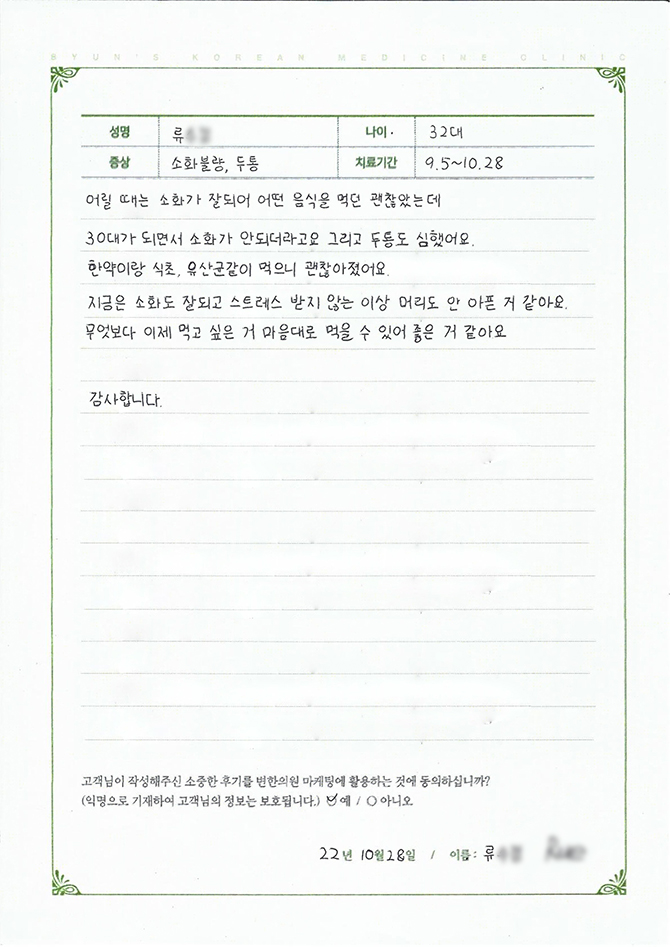 BYUN'S KOREAN MEDICINE CLINIC
성명 류 나이 32대
증상 소화불량, 두통 치료기간 9.5~10.28
어릴 때는 소화가 잘되어 어떤 음식을 먹던 괜찮았는데
30대가 되면서 소화가 안되더라고요 그리고 두통도 심했어요.
한약이랑 식초, 유산균같이 먹으니 괜찮아졌어요.
지금은 소화도 잘되고 스트레스 받지 않는 이상 머리도 안 아픈 거 같아요.
무엇보다 이제 먹고 싶은 거 마음대로 먹을 수 있어 좋은 거 같아요
감사합니다.
고객님이 작성해주신 소중한 후기를 변한의원 마케팅에 활용하는 것에 동의하십니까?
(익명으로 기재하여 고객님의 정보는 보호됩니다.) 예 / 아니오
22년 10월 28일 / 이름: 류